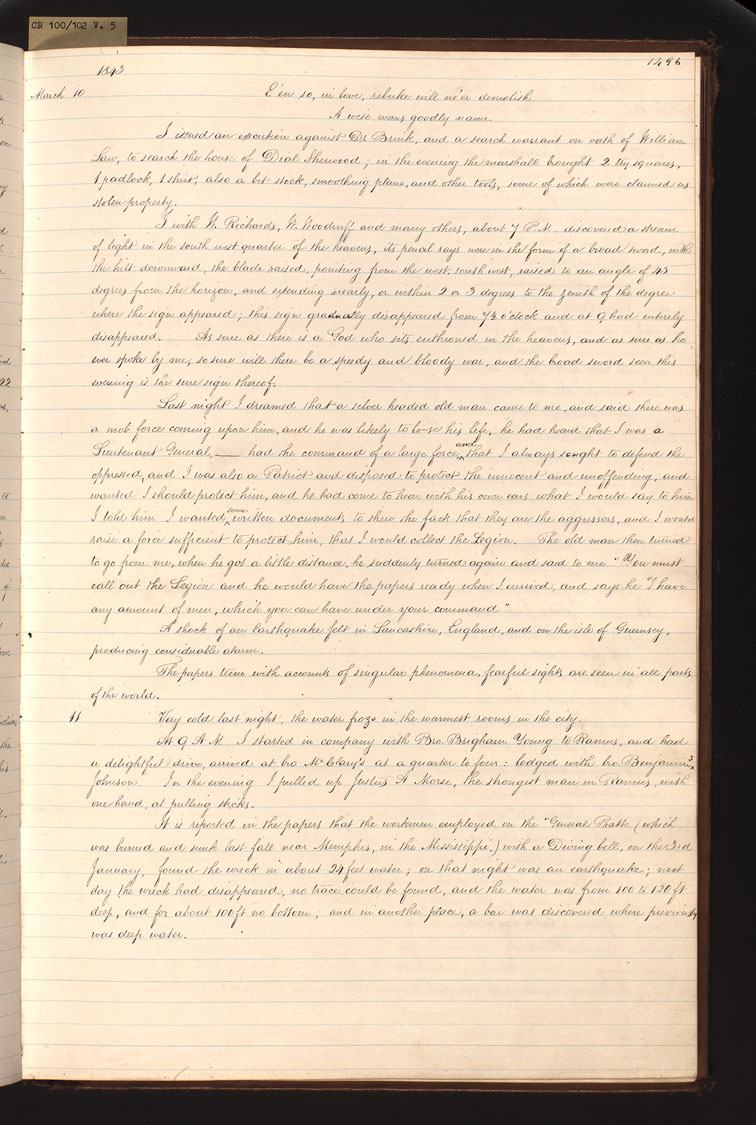 CR 100/102 V. 5
1843
1486
March 10
E'en so, in love, rebuke will ne'er demolish
A wise mans goodly name.
I issued an execution against Dr Brink, and a search warrant on oath of William
Law, to search the house of Dial Sherwood; in the evening the marshall brought 2 try squares,
1 padlock, 1 shirt, also a bit stock, smoothing plane, and other tools, some of which were claimed as
stolen property.
I with W. Richards, W. Woodruff and many others, about 7 P.M. discovered a stream
of light in the south west quarter of the heavens, its pencil rays were in the form of a broad sword, with
the hilt downward, the blade raised, pointing from the west, southwest, raised to an angle of 45
degrees from the horizon, and extending nearly, or within 2 or 3 degrees to the zenith of the degree
where the sign appeared; this sign gradually disappeared from 7½ o'clock and at 9 had entirely
disappeared. As sure as there is a God who sits enthroned in the heavens, and as sure as he
ever spoke by me, so sure will there be a speedy and bloody war, and the broad sword seen this
evening is the sure sign thereof.
Last night I dreamed that a silver headed old man came to me, and said there was
a mob force coming upon him, and he was likely to lose his life, he had heard that I was a
Lieutenant General, —— had the command of a large force, and that I always sought to defend the
oppressed, and I was also a Patriot and disposed to protect the innocent and unoffending, and
wanted I should protect him, and he had come to hear with his own ears what I would say to him
I told him I wanted some written documents to shew the fact that they are the aggressors, and I would
raise a force sufficient to protect him, that I would collect the Legion. The old man then turned
to go from me, when he got a little distance, he suddenly turned again and said to me "You must
call out the Legion and he would have the papers ready when I arrived, and says he "I have
any amount of men, which you can have under your command"
A shock of an Earthquake felt in Lancashire, England, and on the isle of Guernsey,
producing considerable alarm.
The papers teem with accounts of singular phenomena, fearful sights are seen in all parts
of the world.
11
Very cold last night, the water froze in the warmest rooms in the city.
At 9 A.M. I started in company with Bro. Brigham Young to Ramus, and had
a delightful drive, arrived at bro McClary's at a quarter to four: lodged with bro Benjamin F.
Johnson. In the evening I pulled up Justus A Morse, the strongest man in Ramus, with
one hand, at pulling sticks.
It is reported in the papers that the workmen employed on the "General Pratte" (which
was burned and sunk last fall near Memphis, in the Mississippi.) with a Diving bell, on the 3rd
January, found the wreck in about 24 feet water; on that night was an earthquake; next
day the wreck had disappeared, no trace could be found, and the water was from 100 to 120 ft
deep, and for about 100 ft no bottom; and in another place, a bar was discovered where previously
was deep water.